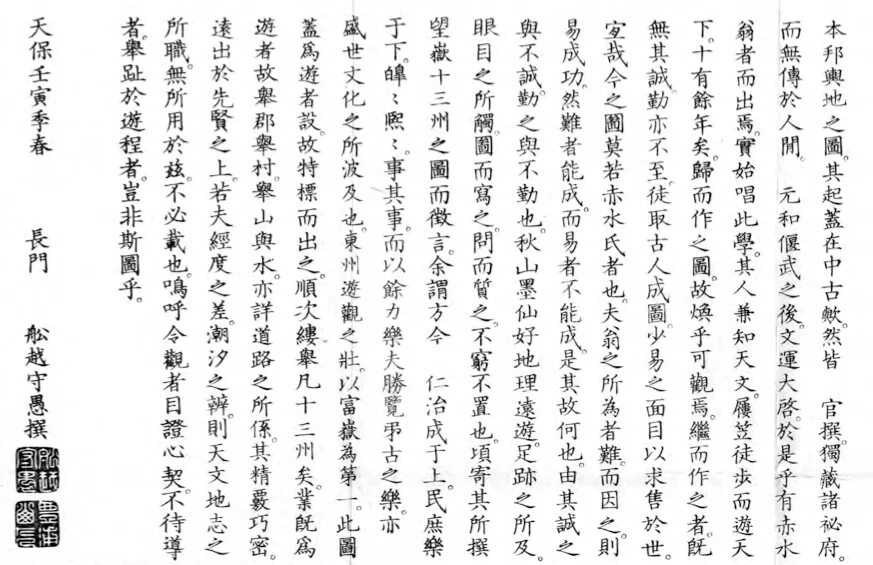 本邦輿地之圖。其起蓋在中古歟。然皆　官撰。獨藏諸祕府。
而無傳於人閒。　元和偃武之後。文運大啓。於是乎有赤水
翁者而出焉。實始唱此學。其人兼知天文。屨笠徒步而遊天
下。十有餘年矣。歸而作之圖。故煥乎可觀焉。繼而作之者。旣
無其誠。勤亦不至。徒取古人成圖。少易之面目以求售於世。
宐哉今之圖莫若赤水氏者也。夫翁之所為者難。而因之則
易成功。然難者能成。而易者不能成。是其故何也。由其誠之
與不誠。勤之與不勤也。秋山墨仙好地理遠遊。足跡之所及。
眼目之所觸。圖而寫之。問而質之。不窮不置也。頃寄其所撰
望嶽十三州之圖而徵言。余謂方今　仁治成于上。民庶樂
于下。皥〻熙〻。事其事。而以餘力樂夫勝覽弔古之樂。亦
盛世文化之所波及也。東州遊觀之壯。以富嶽為第一。此圖
蓋爲遊者設。故特標而出之。順次縷舉凡十三州矣。業旣爲
遊者。故舉郡舉村。舉山與水。亦詳道路之所係。其精覈巧密。
遠出於先賢之上。若夫經度之差。潮汐之辨。則天文地志之
所職。無所用於茲。不必載也。嗚呼令觀者目證心契。不待導
者。舉趾於遊程者。豈非斯圖乎。
天保壬寅季春　　長門　　舩越守愚撰